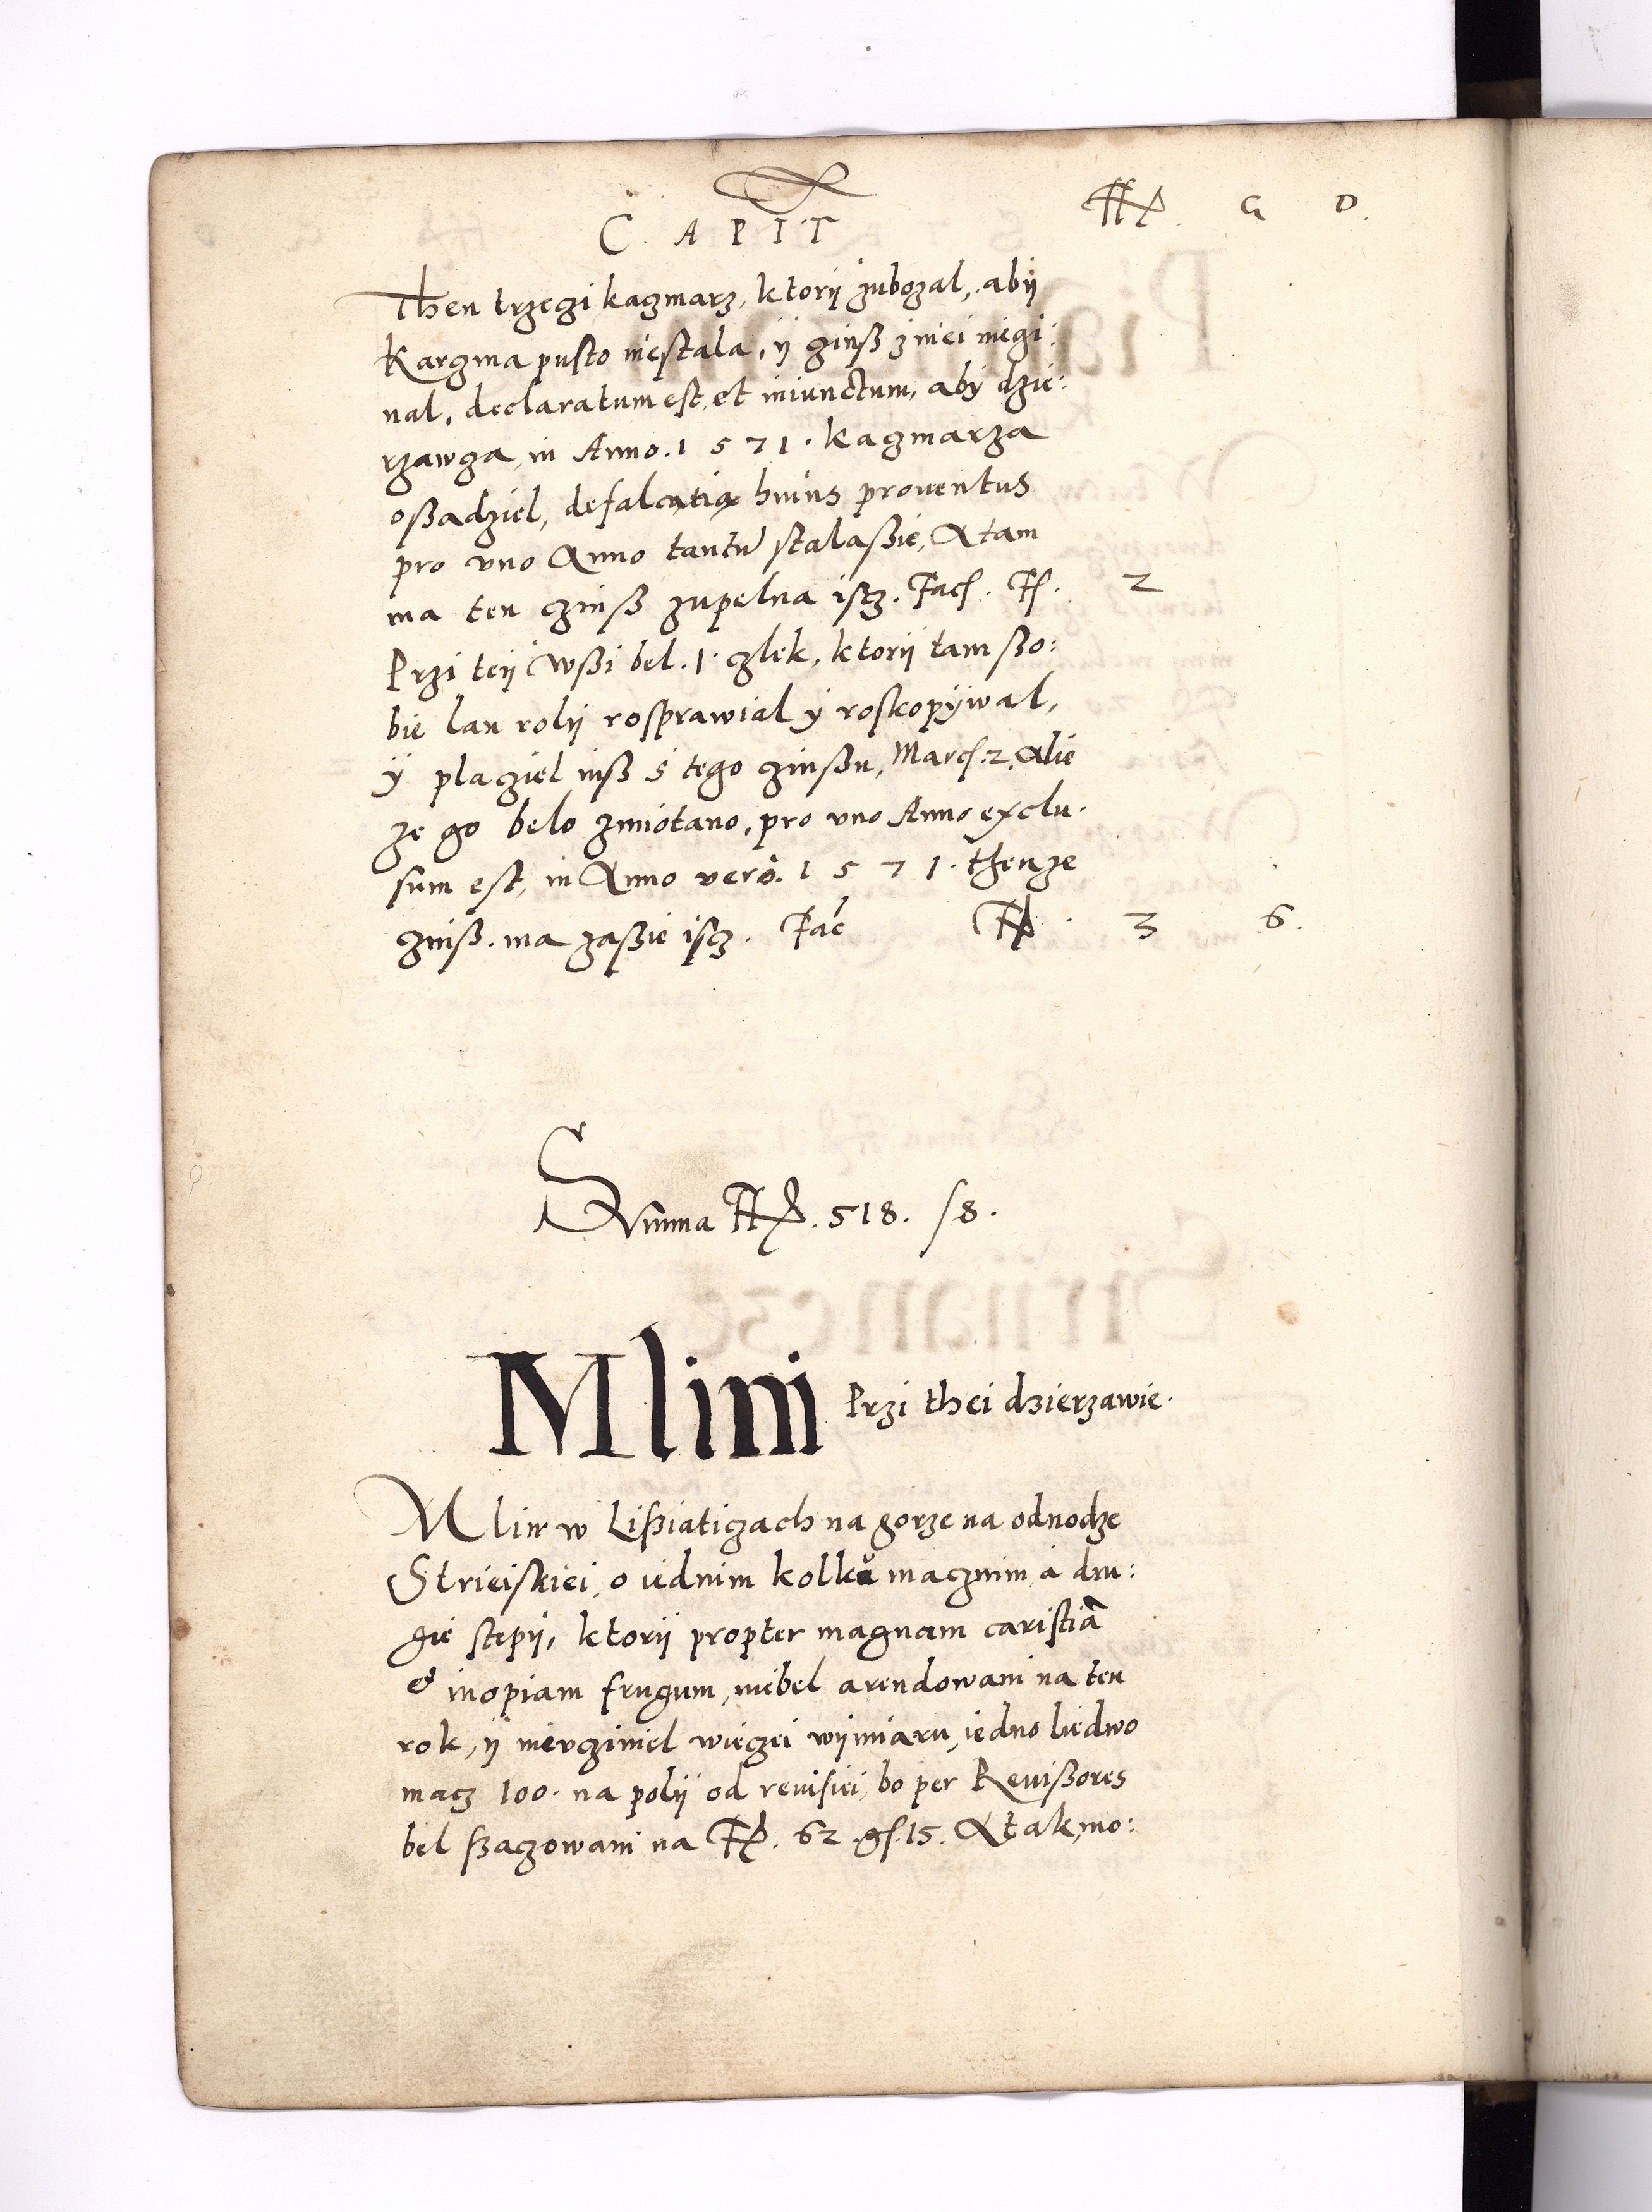 CAPIT G D.
Then trzeczi kaczmarz, ktorÿ zubozal, abÿ
Karczma pusto niestala, ÿ czinß z niei nieczi:
nal, declaratum est, et iniunctum, aby dzie:
rzawcza, in Anno. 1571. kaczmarza
oßadziel, defalcatia huius prouentus
pro vno Anno tantū stalaßie, A tam
ma ten czinß zupelna iscz. Fac 2
Przi teÿ Wßi bel. 1. czlek, ktorÿ tam ßo:
bie lan rolÿ rosprawial ÿ roskopÿwal,
ÿ placziel inß s tego czinßu, Marc. 2. Alie
ze go belo zmiotano, pro vno Anno exclu:
sum est, in Anno vero. 1571. thenze
czinß. ma zaßie iscz. Fac 3 6.
Summa 518. /8.
Mlini Przi thei dzierzawie.
Mlin w Lißiaticzach na gorze na odnodze
Strieiskiei, o iednim kolku macznim, a dru:
gie stepÿ, ktorÿ propter magnam caristiā
et inopiam frugum, niebel arendowani na ten
rok, ÿ nieucziniel wieczei wÿmiaru, iedno liedwo
macz 100. na polÿ od reuisiei, bo per Reuißores
bel ßaczowani na 62 gs. 15. A tak, mo: